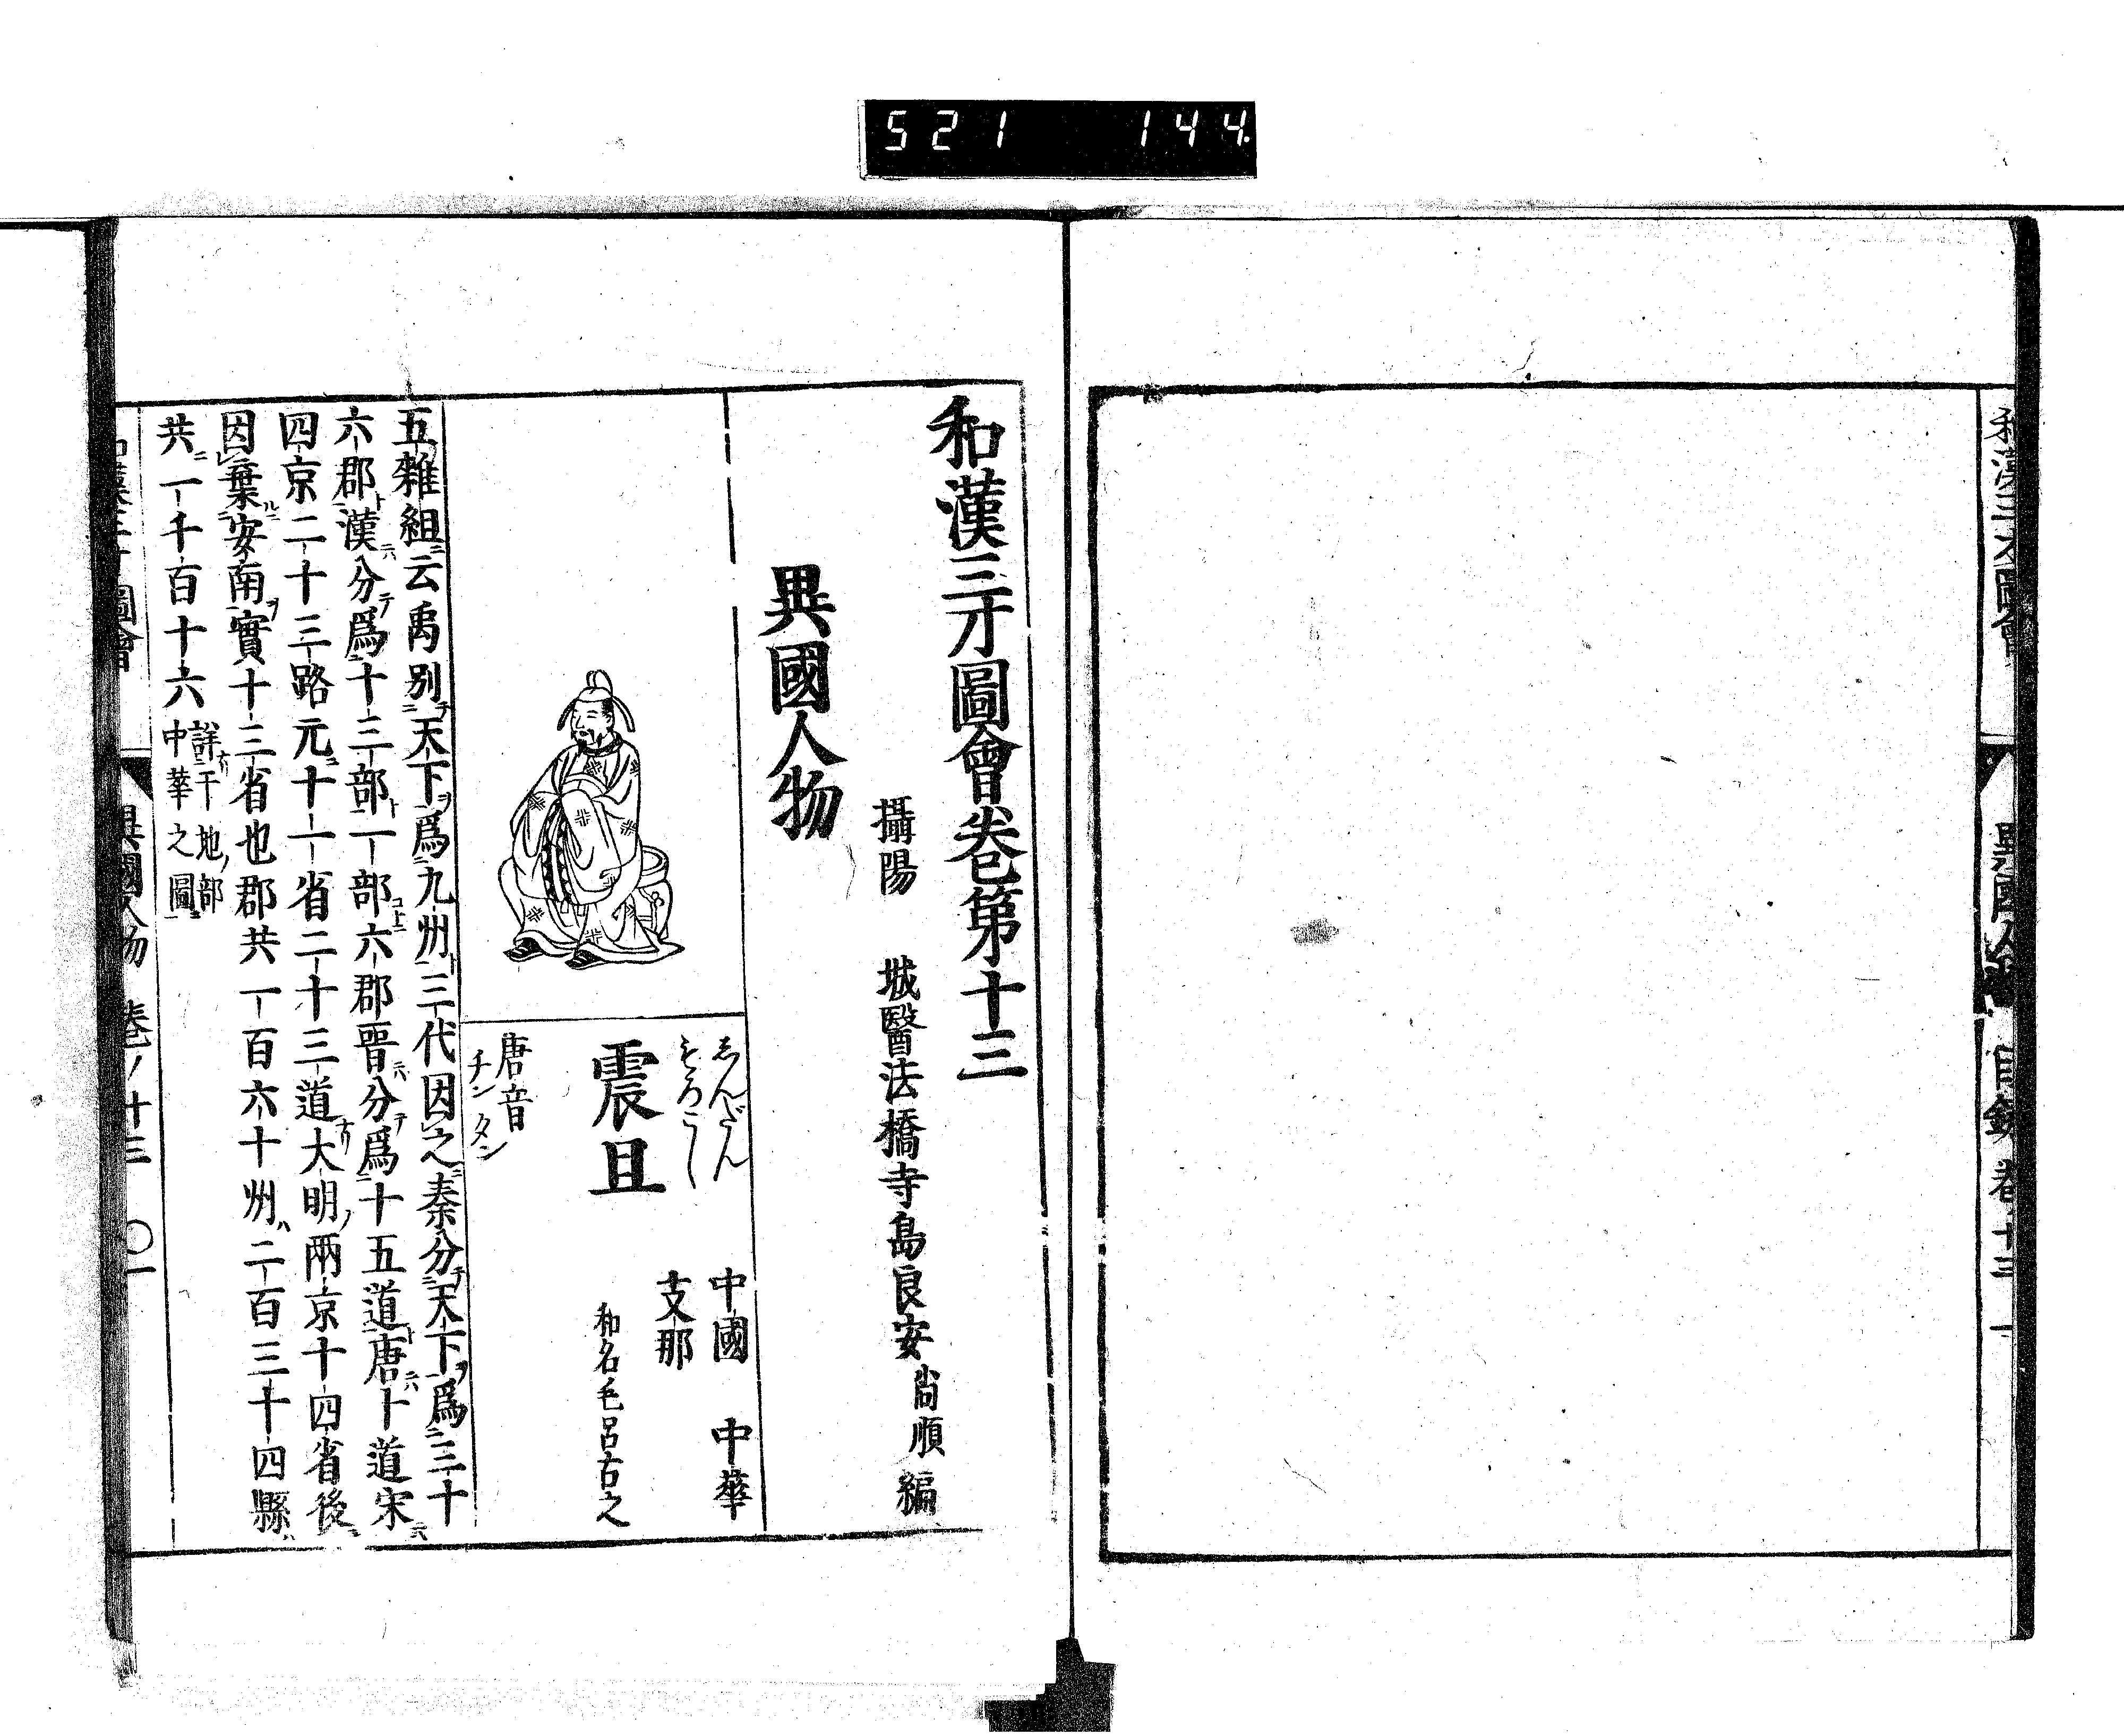 521 144
和漢三才圖會
異國人物 目錄 卷十三 一
和漢三才圖會卷第十三
攝陽 城醫法橋寺島良安尚順編
異國人物
しんだん
もろこし
震旦
唐音
チンタン
中國 中華
支那
和名毛呂古之
五雜組云禹別天下爲九州三代因之秦分天下爲三十
六郡漢分爲十三部一部六郡晋分爲十五道唐十道宋
四京二十三路元十一省二十三道大明兩京十四省後
因棄安南實十三省也郡共一百六十州二百三十四縣
共一千百十六
詳于地部
中華之圖
和漢三才圖會 異國人物 卷ノ十三 〇一